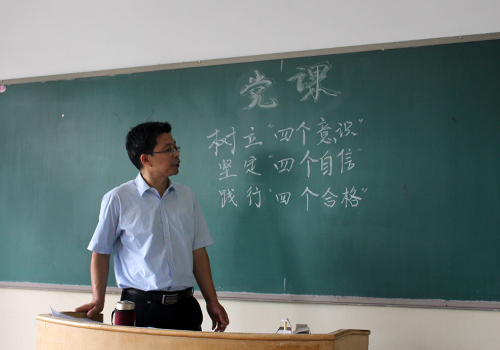 党课
树立"四个意识"
坚定"四个自信"
践行"四个合格"